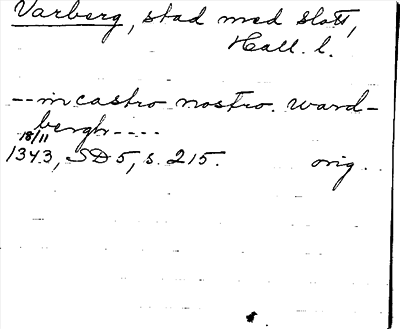 Varberg, stad med slott,
Hall. l.
-- in castro nostro. ward-
bergh ----
18/11
1343, SD 5, s. 215. orig.